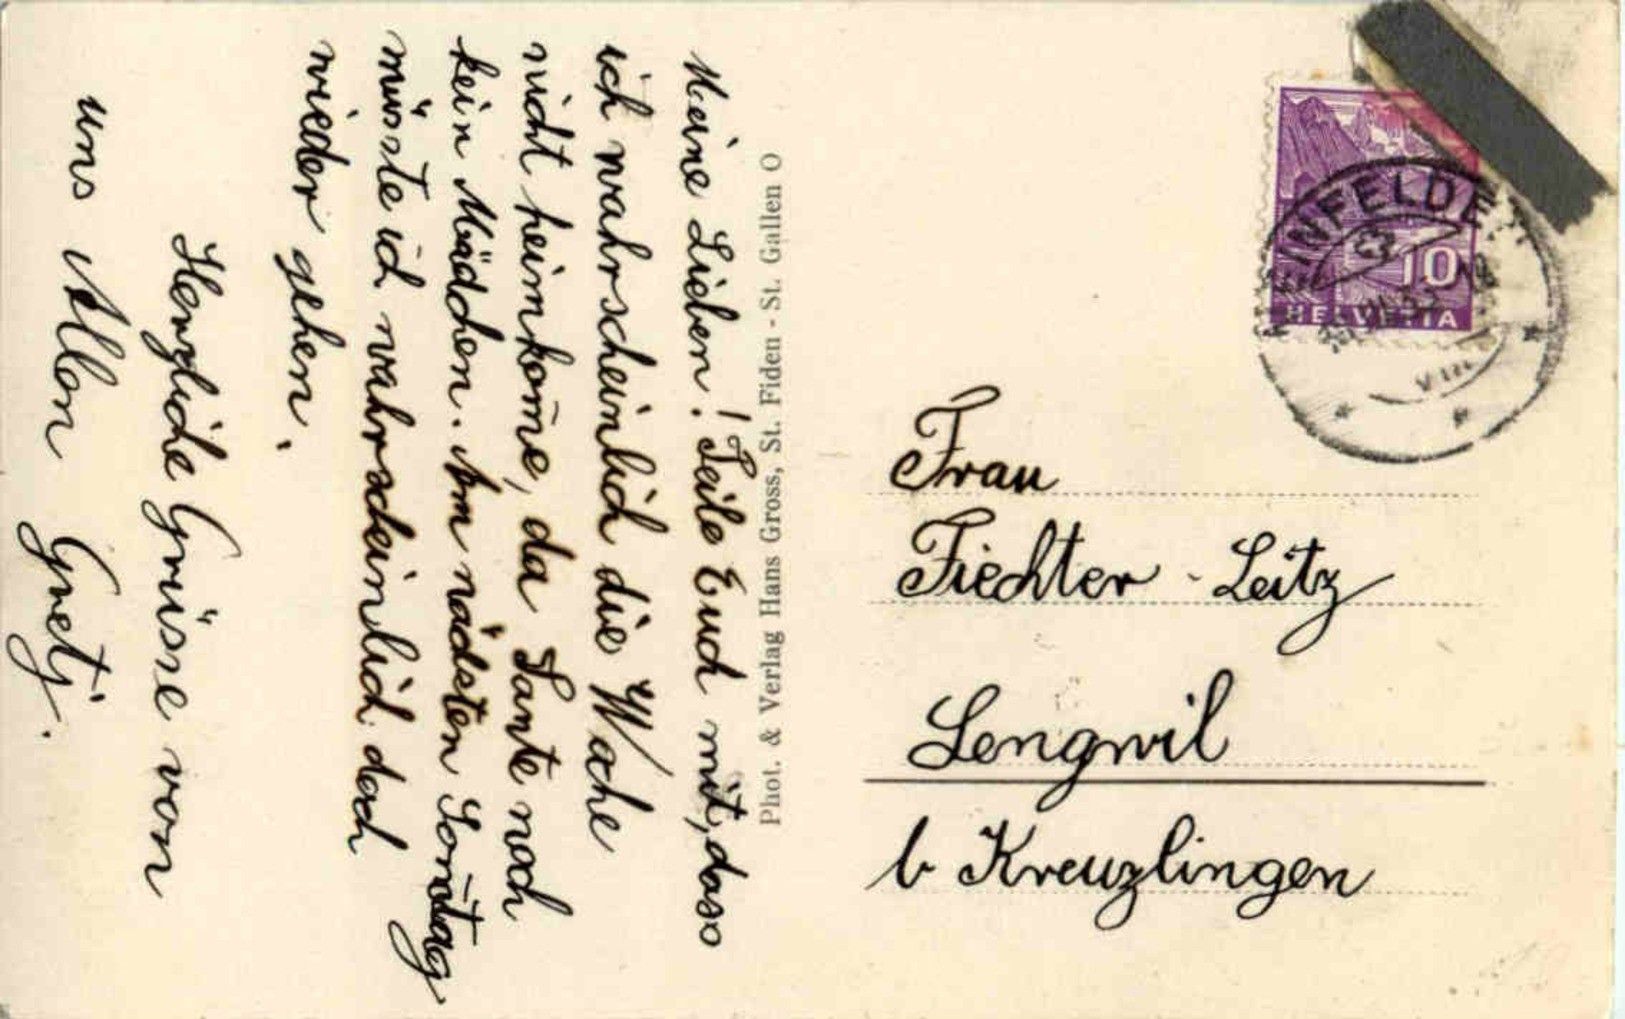 Meine Lieben! Teile Euch mit, dass
ich wahrscheinlich die Woche
nicht heimkom̄e, da Tante noch
kein Mädchen. Am nächsten Son̄tag
müsste ich wahrscheinlich doch
wieder gehen.
Herzliche Grüsse von
uns Allen Gretj.
Phot. & Verlag Hans Gross, St. Fiden - St. Gallen O
INFELDEN
10
HELVETIA
VIII
Frau
Fiechter - Leitz
Lengwil
b Kreuzlingen